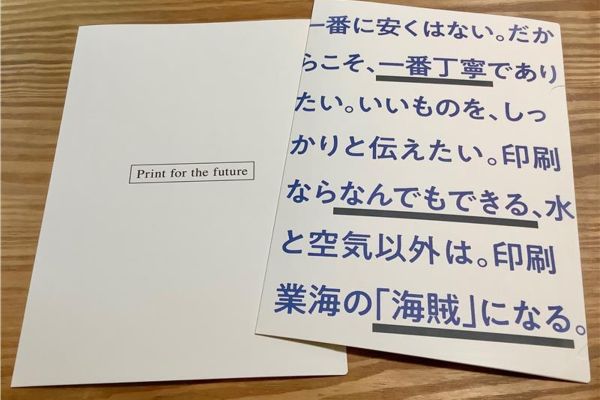 Print for the future
一番に安くはない。だか
らこそ、一番丁寧であり
たい。いいものを、しっ
かりと伝えたい。印刷
ならなんでもできる、水
と空気以外は。印刷
業海の「海賊」になる。